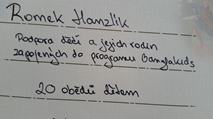 Romek Hanzlík
Podpora dětí a jejich rodin
zapojených do programu BanglaKids
20 obědů dětem